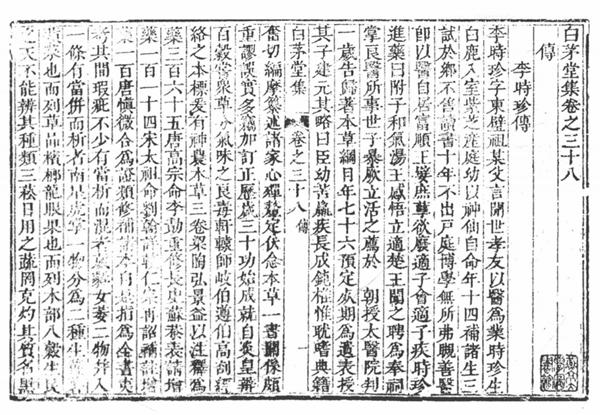 白茅堂集卷之三十八
傳
李時珍傳
李時珍字東璧祖某父言聞世孝友以醫為業時珍生
白鹿入室紫芝產庭幼以神仙自命年十四補諸生三
試於鄉不售讀書十年不出戶庭博學無所弗瞷善醫
即以醫自居富順王嬖庶孽欲廢適子會適子疾時珍
進藥曰附子和氣湯王感悟立適楚王聞之聘為奉祠
掌良醫所事世子暴厥立活之薦於 朝授太醫院判
一歲告歸著本草綱目年七十六預定死期為遺表授
其子建元其略曰臣幼苦羸疾長成鈍椎惟耽嗜典籍
白茅堂集 卷之三十八 傳
奮切編摩纂述諸家心殫釐定伏念本草一書關係頗
重謬誤實多竊加訂正歷歲三十功始成就自炎皇辨
百穀嘗眾草分氣味之良毒軒轅師岐伯遵伯高剖經
絡之本標爰有神農本草三卷梁陶弘景益以注釋為
藥三百六十五唐高宗命李勣重修長史蘇恭表請增
藥一百一十四宋太祖命劉翰詳較仁宗再詔補註增
藥一百唐慎微合為證類修補諸本自是指為全書夷
考其間瑕疵不少有當析而混者葳蕤女萎二物并入
一條有當併而析者南星虎掌一物分為二種生薑薯
蕷菜也而列草品檳榔龍眼果也而列木部八穀生民
之天不能辨其種類三菘日用之蔬罔克灼其質名黑